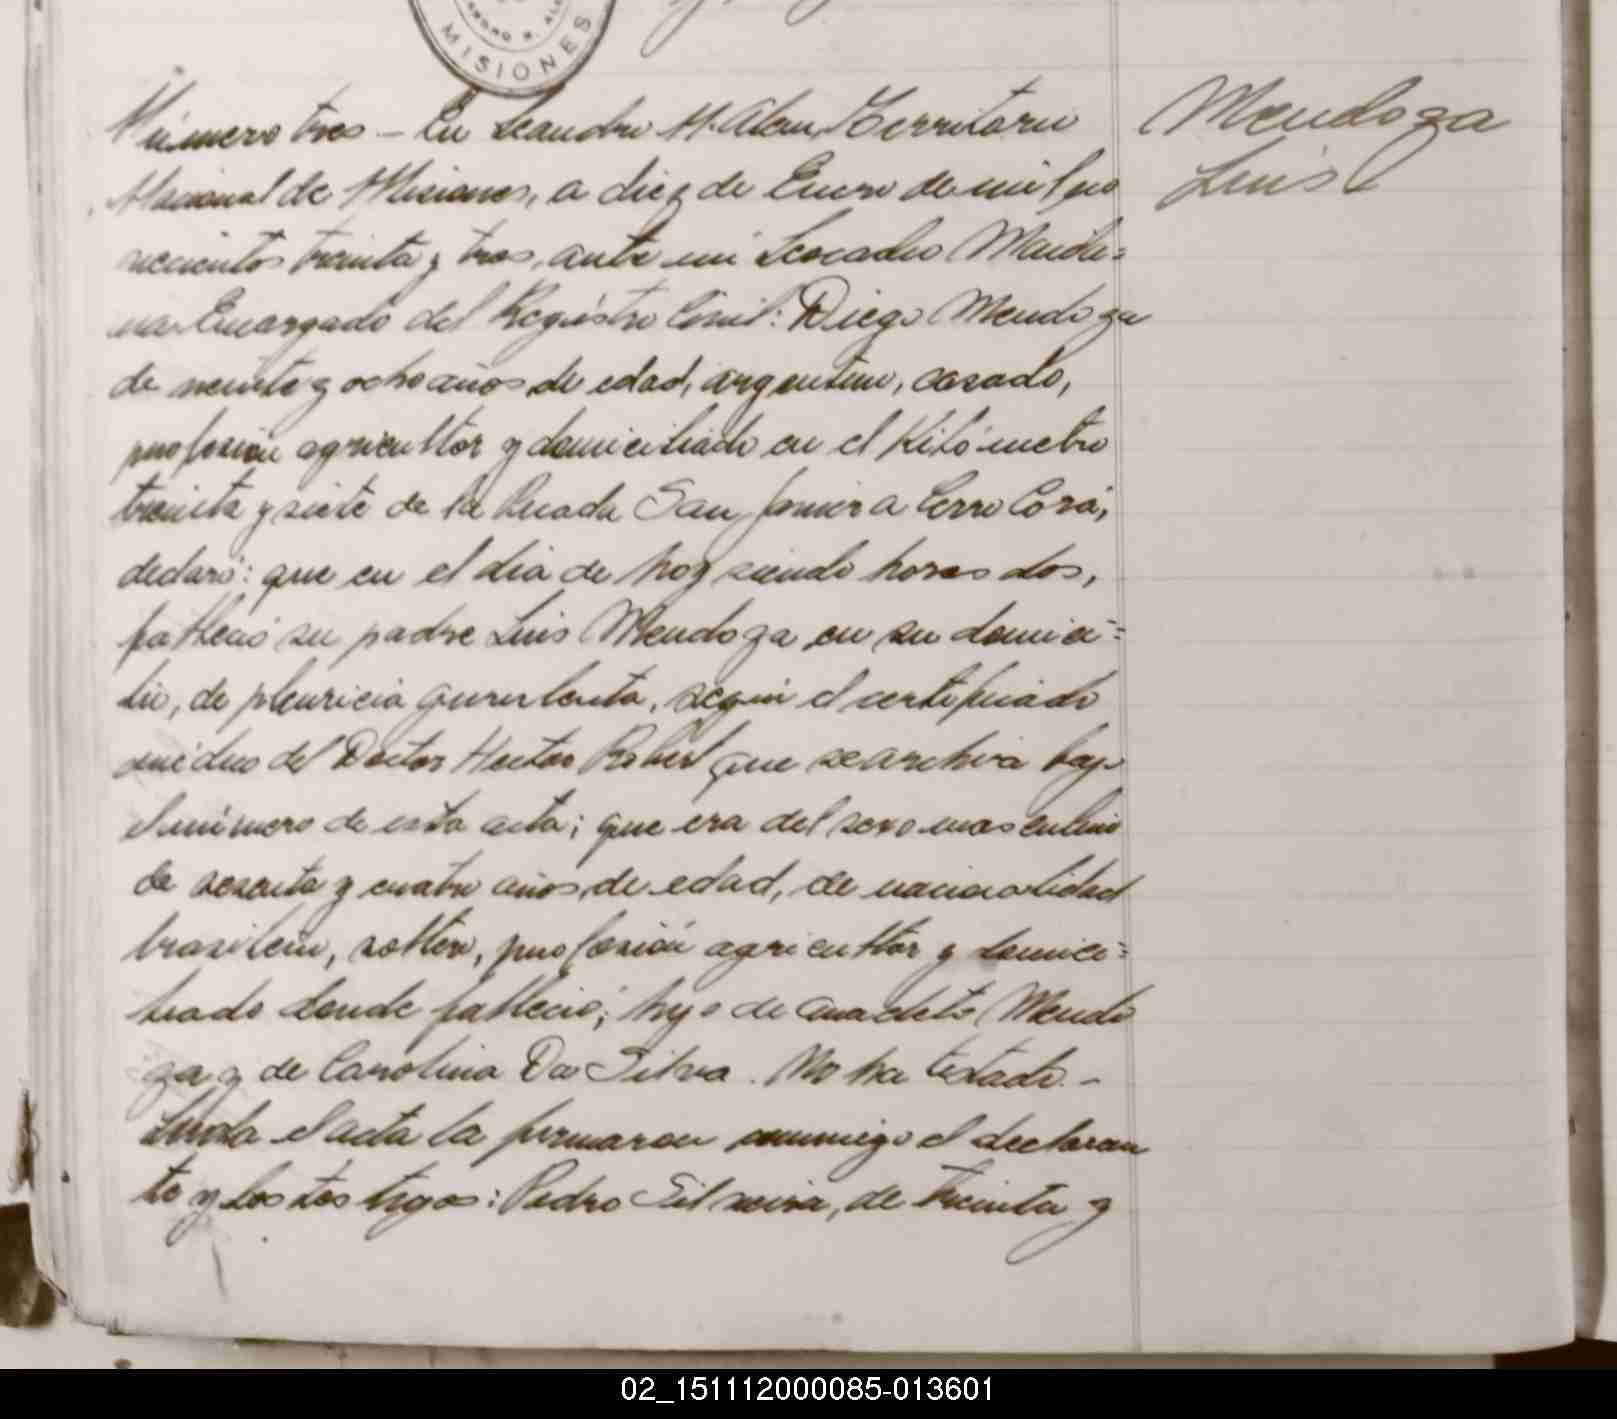 MISIONES
Mendoza
Luis
Número tres – En Leandro N. Alem, Territorio
Nacional de Misiones, a diez de Enero de mil no
vecientos treinta y tres, ante mi Leocadio Maidа=
na Encargado del Registro Civil: Diego Mendoza
de veinte y ocho años de edad, argentino, casado,
profesión agricultor y domiciliado en el Kilómetro
treinta y siete de la Picada San Javier a Cerro Corá,
declaró: que en el dia de hoy siendo horas dos,
falleció su padre Luis Mendoza en su domici=
lio, de pleuricia purulenta, según el certificado
médico del Doctor Hector que se archiva bajo
el número de esta acta; que era del sexo masculino
de sesenta y cuatro años de edad, de nacionalidad
brasilera, soltero, profesión agricultor y domici=
liado donde falleció; hijo de Anacleto Mendo
za y de Carolina Da Silva. No ha testado. –
Leida el acta la firmaron conmigo el declaran
te y los testigos: Pedro Silveira, de treinta y
02_151112000085-013601